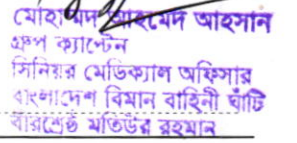 মোহাম্মদ আহমেদ আহসান
গ্রুপ ক্যাপ্টেন
সিনিয়র মেডিক্যাল অফিসার
বাংলাদেশ বিমান বাহিনী ঘাঁটি
বীরশ্রেষ্ঠ মতিউর রহমান